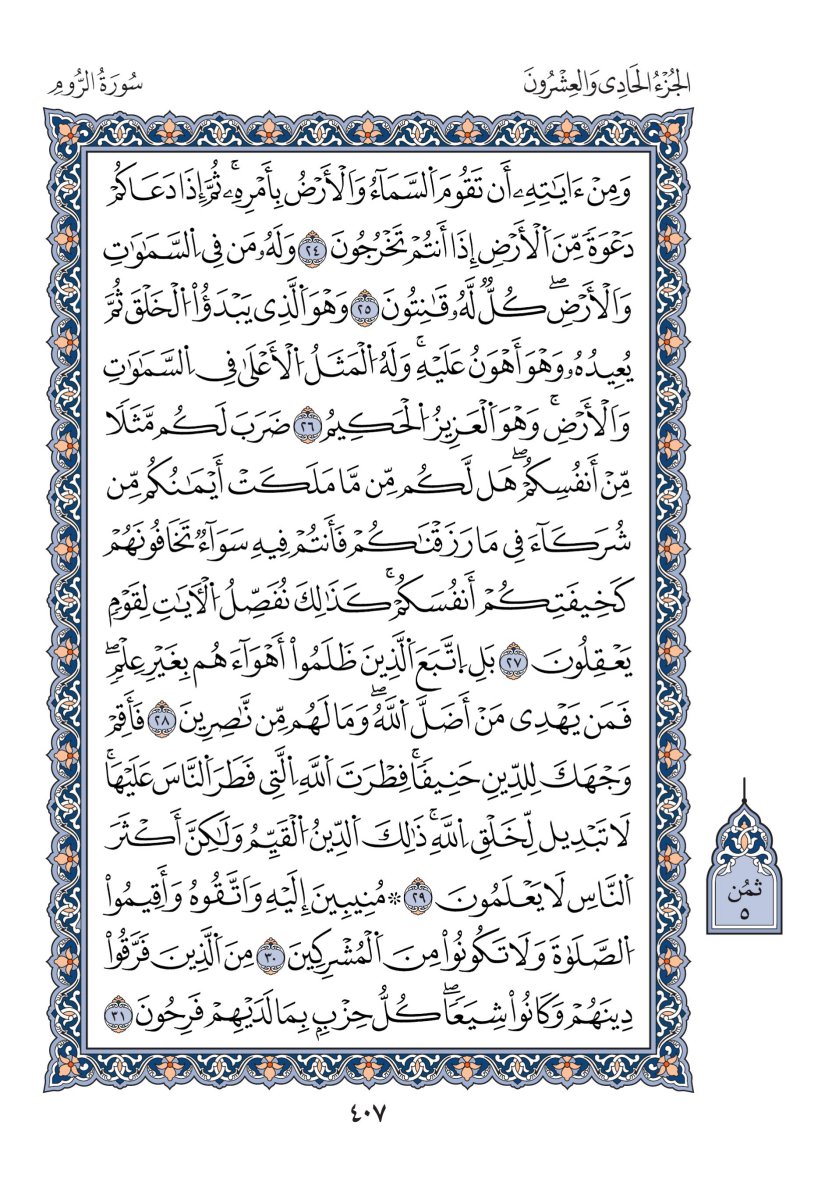 الجُزْءُ الحَادِى وَالعِشْرُونَ
سُورَةُ الرُّومِ
وَمِنْ ءَايَٰتِهِۦ أَن تَقُومَ اَ۬لسَّمَآءُ وَالْأَرْضُ بِأَمْرِهِۦۚ ثُمَّ إِذَا دَعَاكُمْ
دَعْوَةٗ مِّنَ اَ۬لْأَرْضِ إِذَا أَنتُمْ تَخْرُجُونَ ٢٤ وَلَهُۥ مَن فِى اِ۬لسَّمَٰوَٰتِ
وَالْأَرْضِۖ كُلّٞ لَّهُۥ قَٰنِتُونَ ٢٥ وَهْوَ اَ۬لَّذِى يَبْدَؤُاْ اُ۬لْخَلْقَ ثُمَّ
يُعِيدُهُۥ وَهْوَ أَهْوَنُ عَلَيْهِۚ وَلَهُ اُ۬لْمَثَلُ اُ۬لْأَعْلَىٰ فِى اِ۬لسَّمَٰوَٰتِ
وَالْأَرْضِۚ وَهْوَ اَ۬لْعَزِيزُ اُ۬لْحَكِيمُ ٢٦ ضَرَبَ لَكُم مَّثَلٗا
مِّنْ أَنفُسِكُمْۖ هَل لَّكُم مِّن مَّا مَلَكَتْ أَيْمَٰنُكُم مِّن
شُرَكَآءَ فِى مَا رَزَقْنَٰكُمْ فَأَنتُمْ فِيهِ سَوَآءٞ تَخَافُونَهُمْ
كَخِيفَتِكُمْ أَنفُسَكُمْۚ كَذَٰلِكَ نُفَصِّلُ اُ۬لْأٓيَٰتِ لِقَوْمٖ
يَعْقِلُونَ ٢٧ بَلِ اِ۪تَّبَعَ اَ۬لَّذِينَ ظَلَمُواْ أَهْوَآءَهُم بِغَيْرِ عِلْمٖۖ
فَمَن يَهْدِى مَنْ أَضَلَّ اَ۬للَّهُۖ وَمَا لَهُم مِّن نَّٰصِرِينَ ٢٨ فَأَقِمْ
وَجْهَكَ لِلدِّينِ حَنِيفٗاۚ فِطْرَتَ اَ۬للَّهِ اِ۬لَّتِى فَطَرَ اَ۬لنَّاسَ عَلَيْهَاۚ
لَا تَبْدِيلَ لِخَلْقِ اِ۬للَّهِۚ ذَٰلِكَ اَ۬لدِّينُ اُ۬لْقَيِّمُ وَلَٰكِنَّ أَكْثَرَ
اَ۬لنَّاسِ لَا يَعْلَمُونَ ٢٩ ۞ مُنِيبِينَ إِلَيْهِ وَاتَّقُوهُ وَأَقِيمُواْ
اُ۬لصَّلَوٰةَ وَلَا تَكُونُواْ مِنَ اَ۬لْمُشْرِكِينَ ٣٠ مِنَ اَ۬لَّذِينَ فَرَّقُواْ
دِينَهُمْ وَكَانُواْ شِيَعٗاۖ كُلُّ حِزْبِۭ بِمَا لَدَيْهِمْ فَرِحُونَ ٣١
ثُمُن
٥
٤٠٧